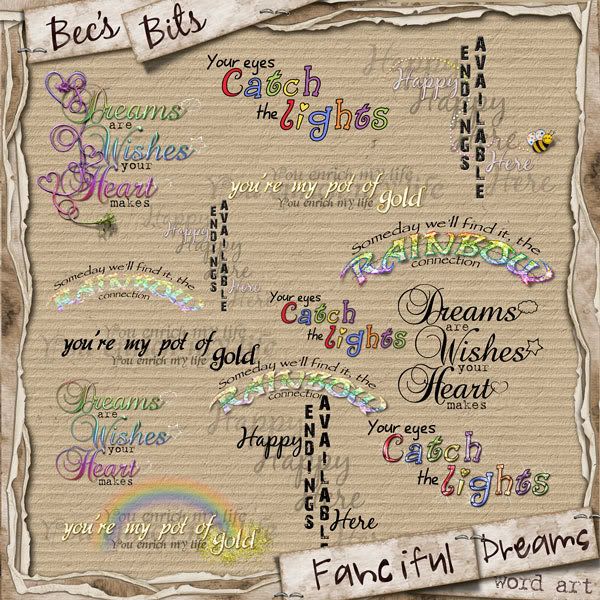 Bec's Bits
Dreams
are
Wishes
your
Heart
makes
Your eyes
Catch
the lights
Happy
ENDINGS
AVAILABLE
Here
Happy
Happy
Are
Here
you're my pot of gold
You enrich my life
You enrich my life
Happy
ENDINGS
AVAILABLE
Here
Happy
Happy
Are
Here
Someday we'll find it, the
RAINBOW
connection
Someday we'll find it, the
RAINBOW
connection
Your eyes
Catch
the lights
Dreams
are
Wishes
your
Heart
makes
you're my pot of gold
You enrich my life
You enrich my life
Someday we'll find it, the
RAINBOW
connection
Dreams
are
Wishes
your
Heart
makes
Happy
ENDINGS
AVAILABLE
Here
Happy
Happy
Are
Here
Your eyes
Catch
the lights
you're my pot of gold
You enrich my life
You enrich my life
Fanciful Dreams
word art